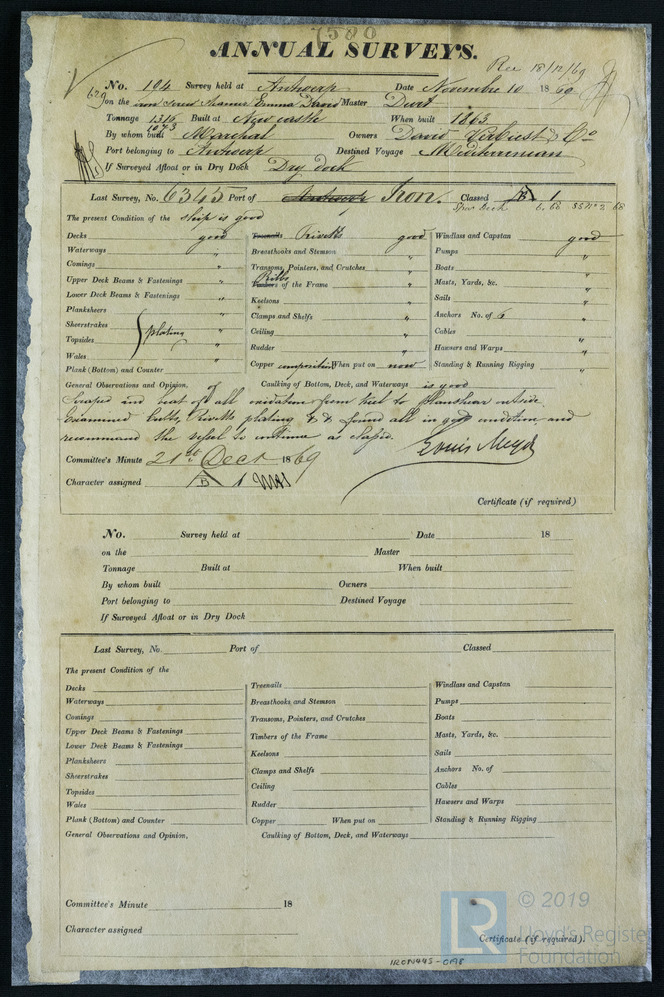 7580
ANNUAL SURVEYS.
Rec 18/12/69
No. 194 Survey held at Antwerp Date Novembre 10 1869
629 on the iron screw steamer Emma Master Durt
Tonnage 1316 Built at Newcastle When built 1863
1073
By whom built Marchal Owners David Verbust & Co
Port belonging to Antwerp Destined Voyage Mediterranean
If Surveyed Afloat or in Dry Dock Dry dock
Last Survey, No. 6345 Port of Antwerp Iron. Classed B. 1
Spar Deck 6. 68 SS No 2 68
The present Condition of the ship is good
Decks good Treenails Rivetts good Windlass and Capstan good
Waterways " Breasthooks and Stemson " Pumps "
Comings " Transoms, Pointers, and Crutches " Boats "
Upper Deck Beams & Fastenings " Timbers Ribbs of the Frame " Masts, Yards, &c. "
Lower Deck Beams & Fastenings " Keelsons " Sails "
Planksheers Clamps and Shelfs " Anchors No. of 6 "
Sheerstrakes plating Ceiling " Cables "
Topsides Rudder " Hawsers and Warps "
Wales " Copper composition When put on now Standing & Running Rigging "
Plank (Bottom) and Counter
General Observations and Opinion. Caulking of Bottom, Deck, and Waterways is good
Scraped and beat of all oxidation from keel to planshear outside
Examined butts, Rivetts plating & & found all in good condition and
recommand the vessel to continue as classed.
Louis Meyer
Committee's Minute 21st Dect 1869
Character assigned B 1
Certificate (if required)
No. Survey held at Date 18
on the Master
Tonnage Built at When built
By whom built Owners
Port belonging to Destined Voyage
If Surveyed Afloat or in Dry Dock
Last Survey, No. Port of Classed
The present Condition of the
Decks Treenails Windlass and Capstan
Waterways Breasthooks and Stemson Pumps
Comings Transoms, Pointers, and Crutches Boats
Upper Deck Beams & Fastenings Timbers of the Frame Masts, Yards, &c.
Lower Deck Beams & Fastenings Keelsons Sails
Planksheers Clamps and Shelfs Anchors No. of
Sheerstrakes Ceiling Cables
Topsides Rudder Hawsers and Warps
Wales Copper When put on Standing & Running Rigging
Plank (Bottom) and Counter
General Observations and Opinion, Caulking of Bottom, Deck, and Waterways
Committee's Minute 18
Character assigned
Certificate (if required).
IRON445-0A8
LR
© 2019
Lloyd's Register
Foundation